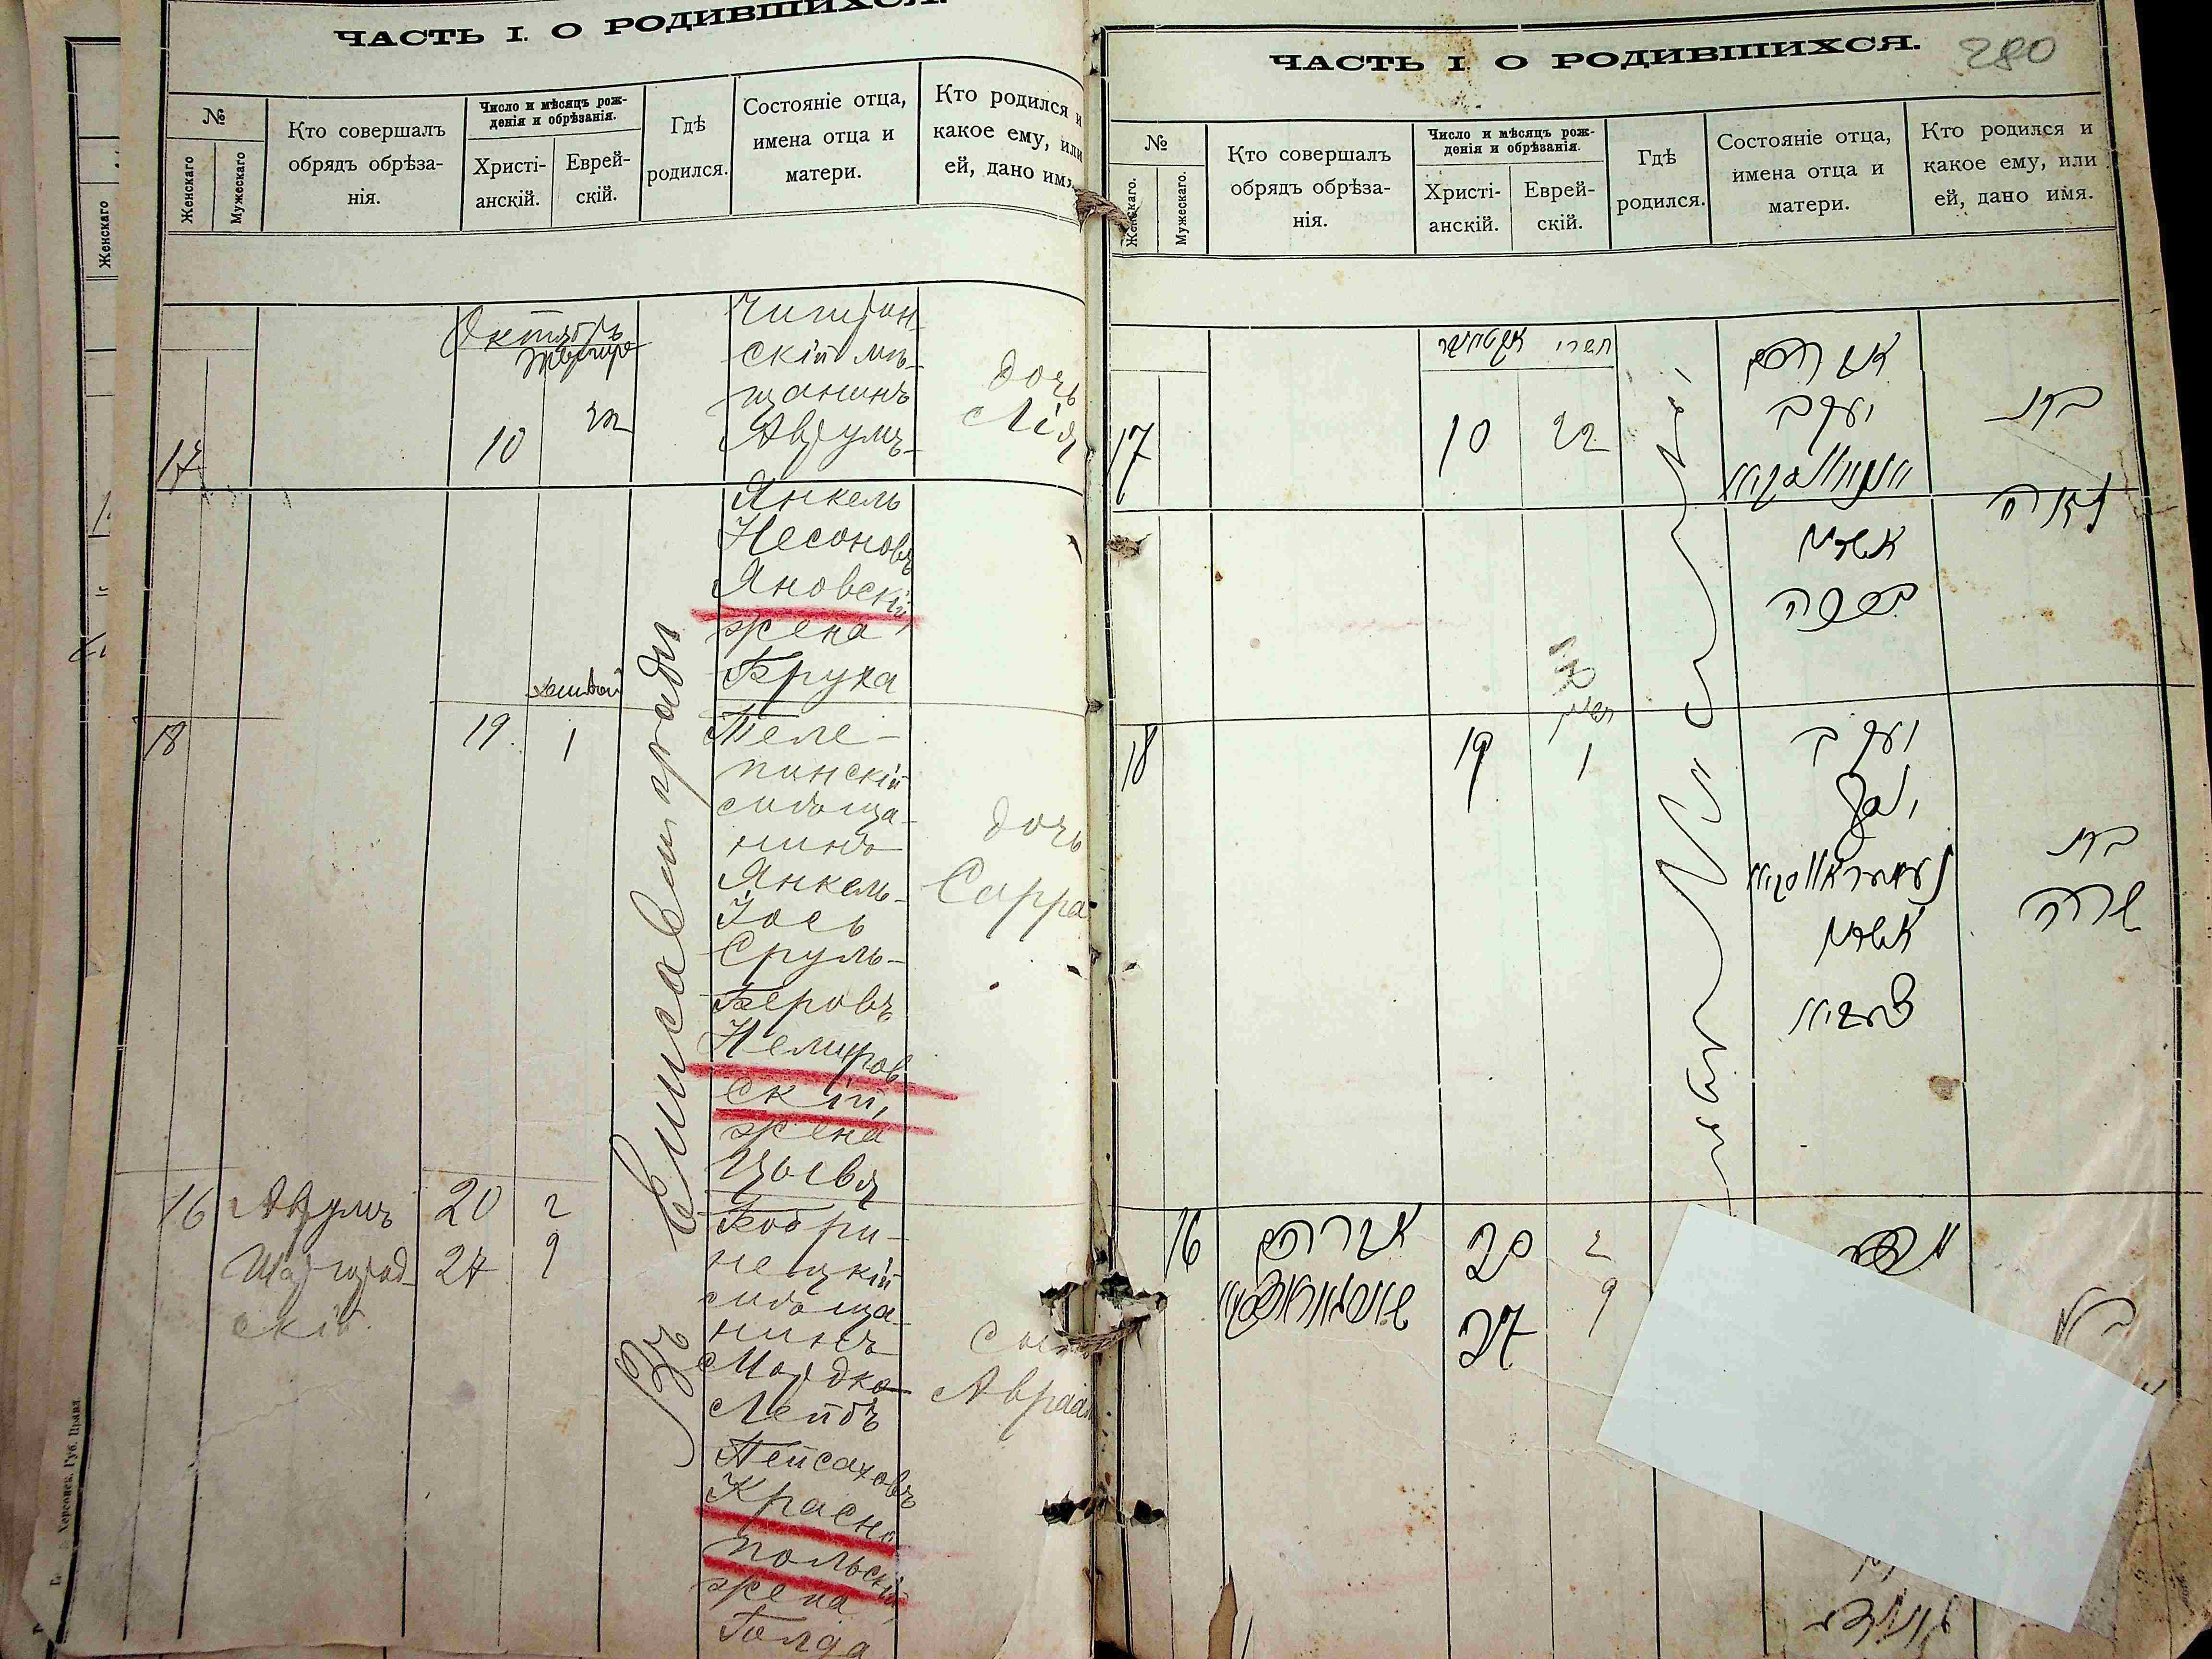 ЧАСТЬ I. О РОДИВШИХСЯ.
№
Женскаго
Мужескаго
Кто совершалъ
обрядъ обрѣза-
нія.
Число и мѣсяцъ рож-
денія и обрѣзанія.
Христі-
анскій.
Еврей-
скій.
Гдѣ
родился.
Состояніе отца,
имена отца и
матери.
Кто родился и
какое ему, или
ей, дано имя.
Октябрь
17
10
скій мѣ-
щанинъ
Аврумъ-
Янкель
Несоновъ
Яновскій,
жена
Брука
дочь
Лія
18
19
1
Теле-
пинскій
мѣща-
нинъ
Янкель-
Іось
Сруль-
Беровъ
Немиров-
скій,
жена
Цывя
дочь
Сарра
Въ Елисаветградѣ
16
Аврумъ
Шаргород-
скій
20
27
2
9
Бобри-
нецкій
мѣща-
нинъ
Мордко-
Лейбъ
Пейсаховъ
Красно
польскій,
жена
Голда
сынъ
Авраам
ЧАСТЬ I. О РОДИВШИХСЯ.
280
№
Женскаго.
Мужескаго.
Кто совершалъ
обрядъ обрѣза-
нія.
Число и мѣсяцъ рож-
денія и обрѣзанія.
Христі-
анскій.
Еврей-
скій.
Гдѣ
родился.
Состояніе отца,
имена отца и
матери.
Кто родился и
какое ему, или
ей, дано имя.
תשרי
17
10
22
אברהם
יעקב
בת
לאה
18
19
1
יעקב
בת
שרה
16
אברהם
20
27
2
9
Женскаго
Херсонск. Губ. Правл